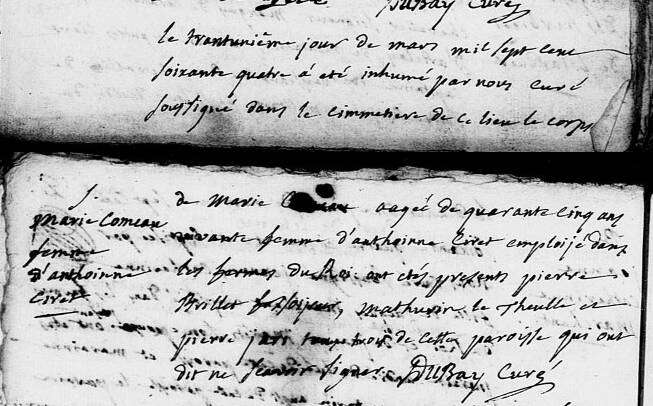 Dubay Curé
le trantuniéme jour de mars mil sept cent
soixante quatre á eté inhumé par nous Curé
soussigné dans le cimmetiere de ce lieu le corps
S.
Marie Comeau
femme
d'anthoinne
Ciret
de Marie Comeau aagée de quarante cinq ans
vivante femme d'anthoinne Ciret emploijé dans
les formes du Roi ont etés presents pierre
Brillet fossoyeur, Mathurin le Theulle et
pierre jary tous trois de cette paroisse qui ont
dit ne sçavoir signer Dubay Curé